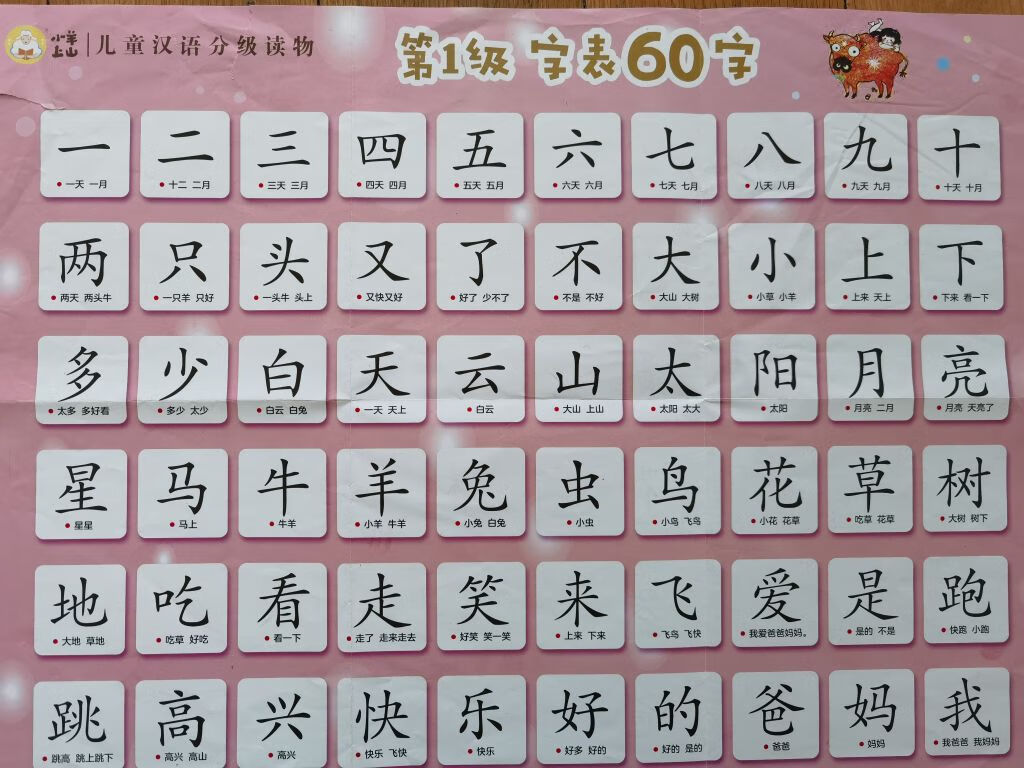 小羊上山 儿童汉语分级读物
第1级 字表60字
一 二 三 四 五 六 七 八 九 十
一天 一月 十二 二月 三天 三月 四天 四月 五天 五月 六天 六月 七天 七月 八天 八月 九天 九月 十天 十月
两 只 头 又 了 不 大 小 上 下
两天 两头牛 一只羊 只好 一头牛 头上 又快又好 好了 少不了 不是 不好 大山 大树 小草 小羊 上来 天上 下来 看一下
多 少 白 天 云 山 太 阳 月 亮
太多 多好看 多少 太少 白云 白兔 一天 天上 白云 大山 上山 太阳 太大 太阳 月亮 二月 月亮 天亮了
星 马 牛 羊 兔 虫 鸟 花 草 树
星星 马上 牛羊 小羊 牛羊 小兔 白兔 小虫 小鸟 飞鸟 小花 花草 吃草 花草 大树 树下
地 吃 看 走 笑 来 飞 爱 是 跑
大地 草地 吃草 好吃 看一下 走了 走来走去 好笑 笑一笑 上来 下来 飞鸟 飞快 我爱爸爸妈妈。 是的 不是 快跑 小跑
跳 高 兴 快 乐 好 的 爸 妈 我
跳高 跳上跳下 高兴 高山 高兴 快乐 飞快 快乐 好多 好的 好的 是的 爸爸 妈妈 我爸爸 我妈妈